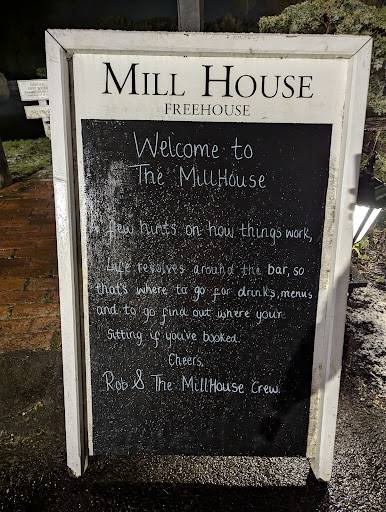 MILL HOUSE
FREEHOUSE
Welcome to
The MillHouse
A few hints on how things work,
Life revolves around the bar, so
that's where to go for drinks, menus
and to go find out where your
sitting if you've booked.
Cheers,
Rob & The MillHouse Crew.